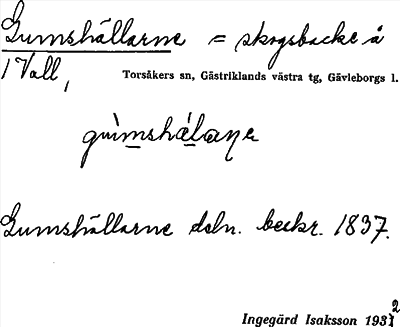 Gumshällarne = skogsbacke å
1 Vall,
Torsåkers sn, Gästriklands västra tg, Gävleborgs l.
gùmshälaɳe
Gumshällarne dsln. beskr. 1837.
Ingegärd Isaksson 1932